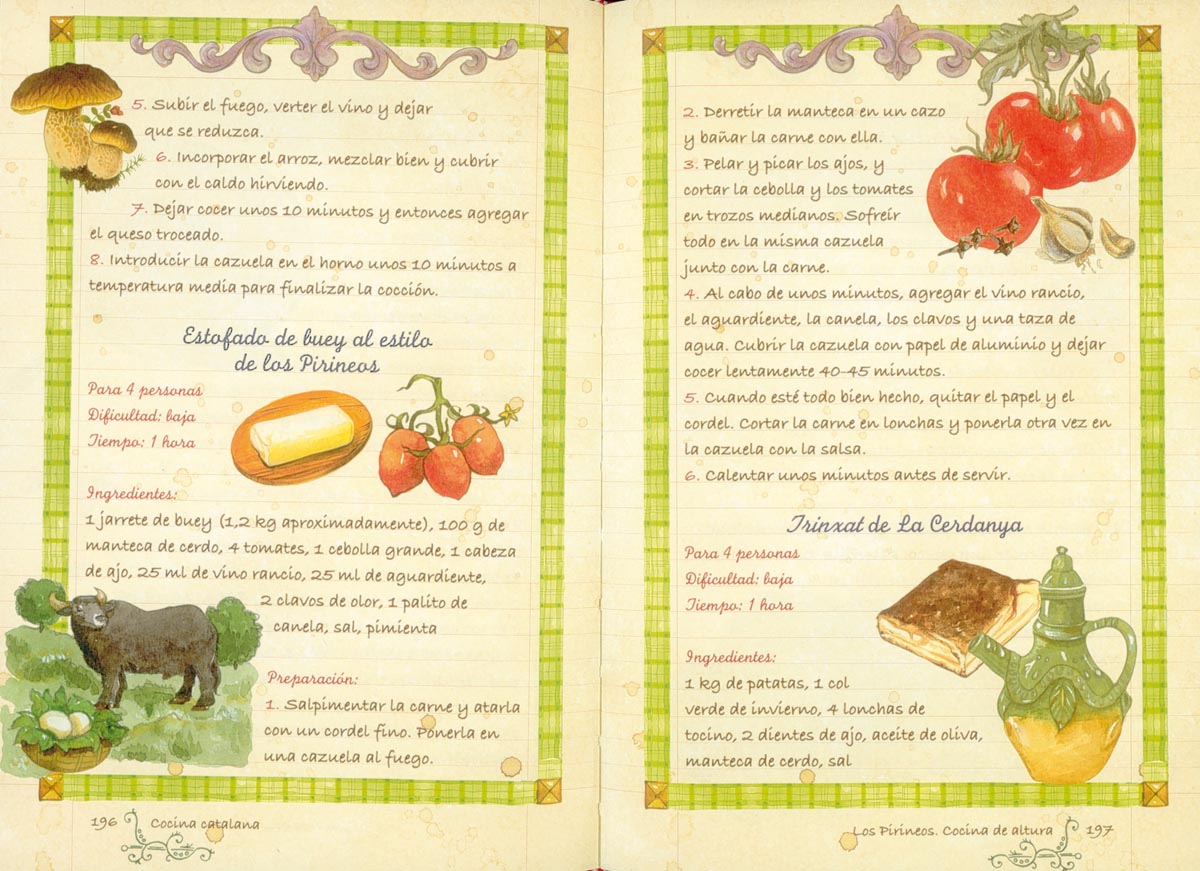 5. Subir el fuego, verter el vino y dejar
que se reduzca.
6. Incorporar el arroz, mezclar bien y cubrir
con el caldo hirviendo.
7. Dejar cocer unos 10 minutos y entonces agregar
el queso troceado.
8. Introducir la cazuela en el horno unos 10 minutos a
temperatura media para finalizar la cocción.
Estofado de buey al estilo
de los Pirineos
Para 4 personas
Dificultad: baja
Tiempo: 1 hora
Ingredientes:
1 jarrete de buey (1,2 kg aproximadamente), 100 g de
manteca de cerdo, 4 tomates, 1 cebolla grande, 1 cabeza
de ajo, 25 ml de vino rancio, 25 ml de aguardiente,
2 clavos de olor, 1 palito de
canela, sal, pimienta
Preparación:
1. Salpimentar la carne y atarla
con un cordel fino. Ponerla en
una cazuela al fuego.
196 Cocina catalana
2. Derretir la manteca en un cazo
y bañar la carne con ella.
3. Pelar y picar los ajos, y
cortar la cebolla y los tomates
en trozos medianos. Sofreír
todo en la misma cazuela
junto con la carne.
4. Al cabo de unos minutos, agregar el vino rancio,
el aguardiente, la canela, los clavos y una taza de
agua. Cubrir la cazuela con papel de aluminio y dejar
cocer lentamente 40-45 minutos.
5. Cuando esté todo bien hecho, quitar el papel y el
cordel. Cortar la carne en lonchas y ponerla otra vez en
la cazuela con la salsa.
6. Calentar unos minutos antes de servir.
Trinxat de La Cerdanya
Para 4 personas
Dificultad: baja
Tiempo: 1 hora
Ingredientes:
1 kg de patatas, 1 col
verde de invierno, 4 lonchas de
tocino, 2 dientes de ajo, aceite de oliva,
manteca de cerdo, sal
Los Pirineos. Cocina de altura 197